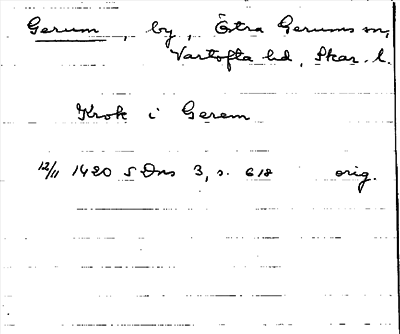 Gerum, by, Östra Gerums sn,
Vartofta hd, Skar. l.
Krok i Gerem
12/11 1420 SDns 3, s. 618 orig.